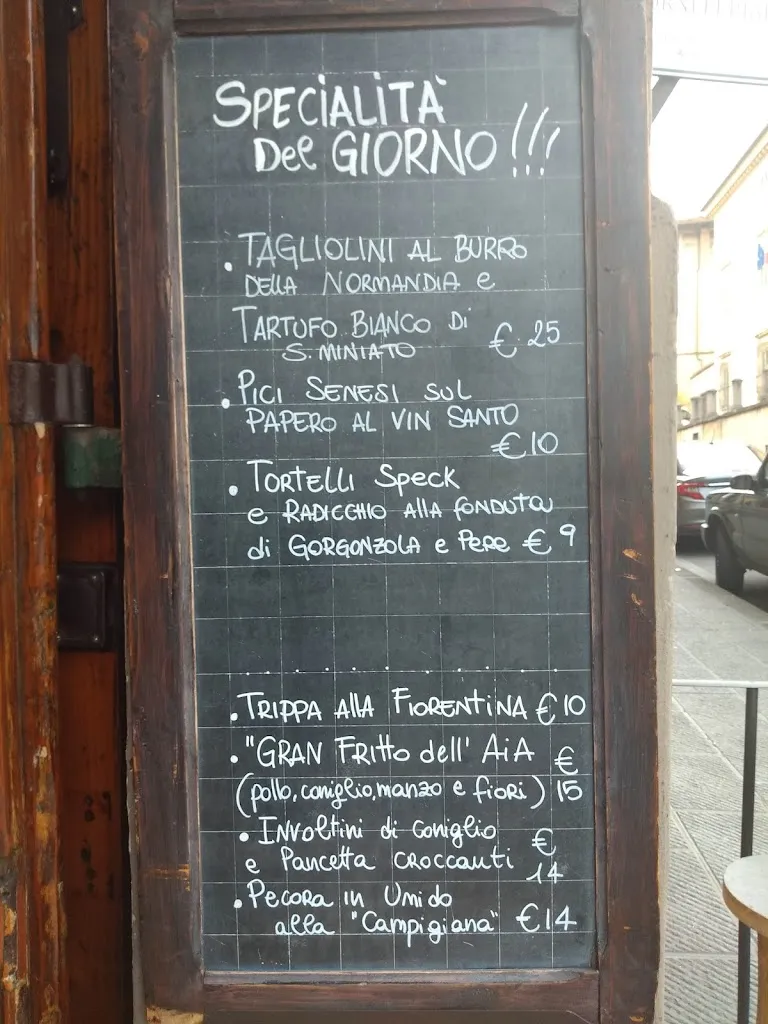 SPECIALITÀ
Del GIORNO !!!
. TAGLIOLINI AL BURRO
DELLA NORMANDIA e
TARTUFO BIANCO DI
S. MINIATO € 25
. PICI SENESI SUL
PAPERO AL VIN SANTO
€ 10
. TORTELLI SPECK
e RADICCHIO Alla FONDUTA
di GORGONZOLA e PERE € 9
. TRIPPA Alla FIORENTINA € 10
. "GRAN FRITTO dell' AiA €
(pollo, coniglio, manzo e fiori) 15
. INVOLTINI di coniglio €
e Pancetta CROCCANTI 14
. PECORA in Umido
alla "Campigiana" € 14